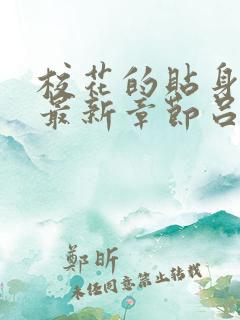 校花的貼身
最新章節呂
鄭昕
未任同意禁止转载